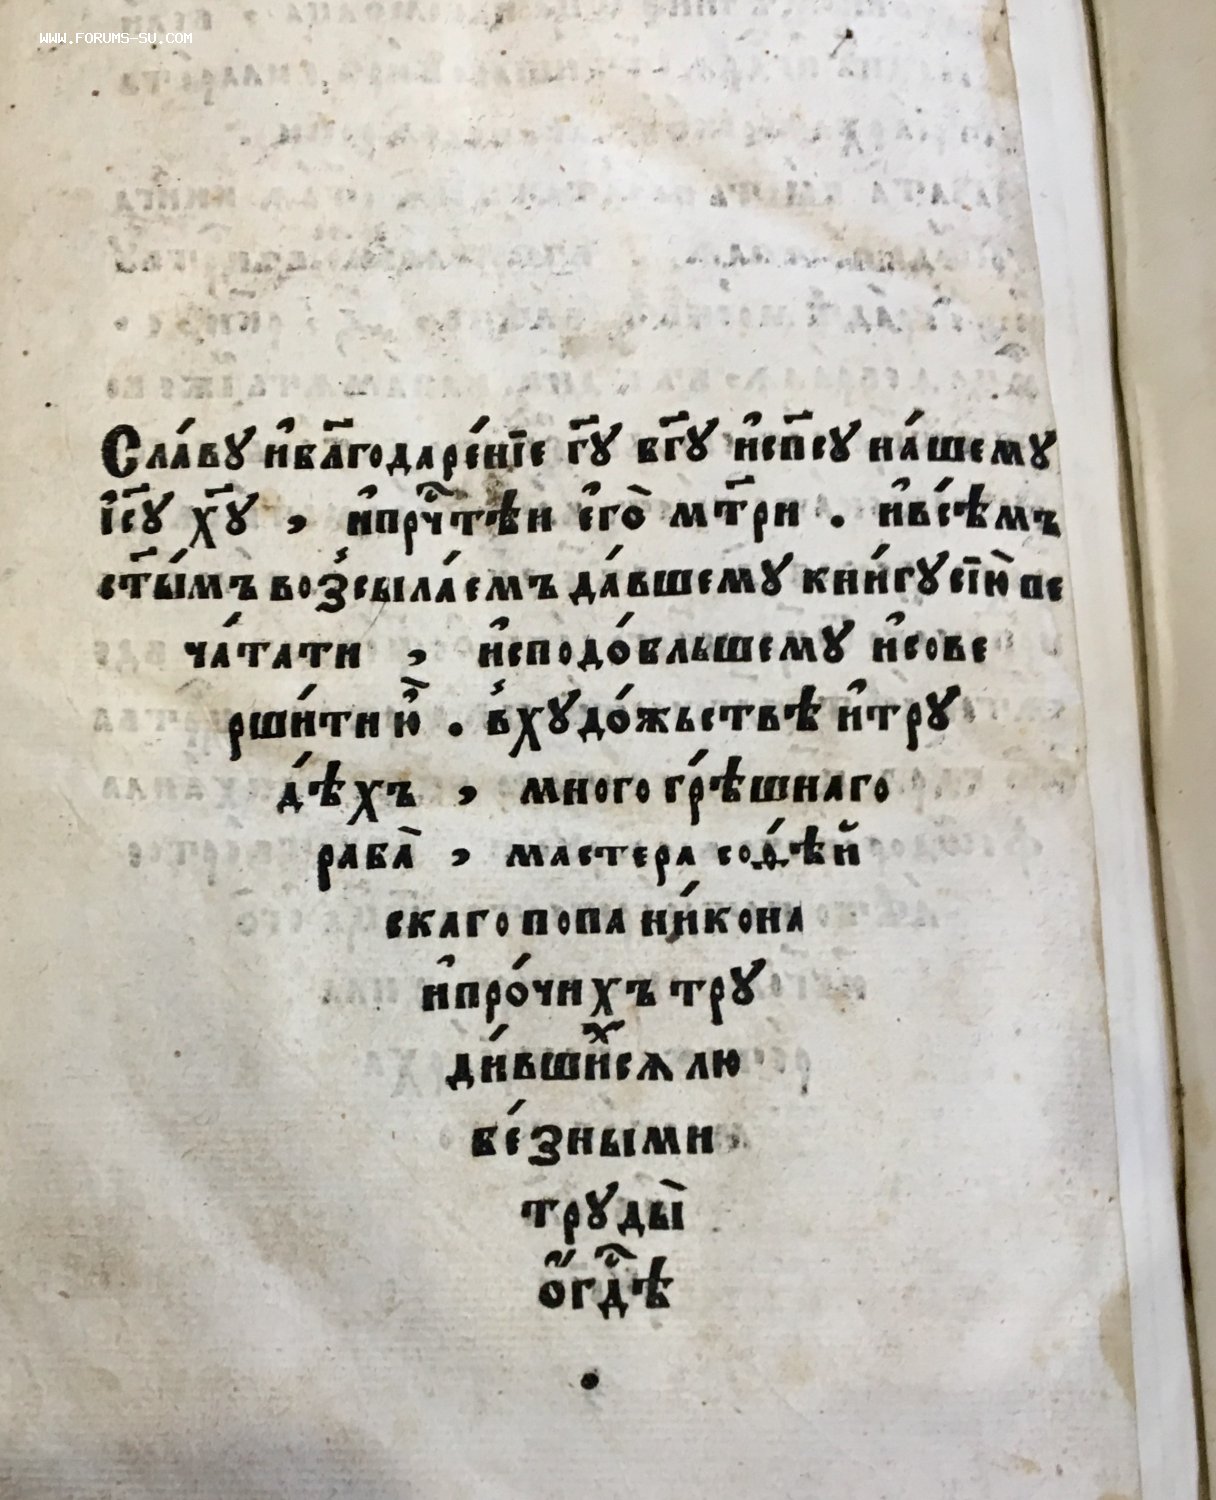 WWW.FORUMS-SU.COM
Сла́вꙋ и҆бл҃годаре́нїе гд҃ꙋ бг҃ꙋ и҆сп҃сꙋ на́шемꙋ
і҆с҃ꙋ х҃ꙋ , и҆прч\u2десⷭ҇тѣи є҆го̀ мт҃ри . и҆все́мъ
ст҃ы́мъ воз̾сыла́емъ да́вшемꙋ кни́гꙋ сїю̀ пе
ча́тати , и҆сподо́бльшемꙋ и҆сове
рши́ти ю҆̀ . в̾хꙋдо́жьствѣ и҆трꙋ
дѣ́хъ , много грѣ́шнаго
раба̀ , мастера софѣ́й
скаго попа ни́кона
и҆про́чихъ трꙋ
ди́вшиⷯсѧ лю
бе́зными
трꙋды̀
ѻ҆́гдⷭ҇ѣ